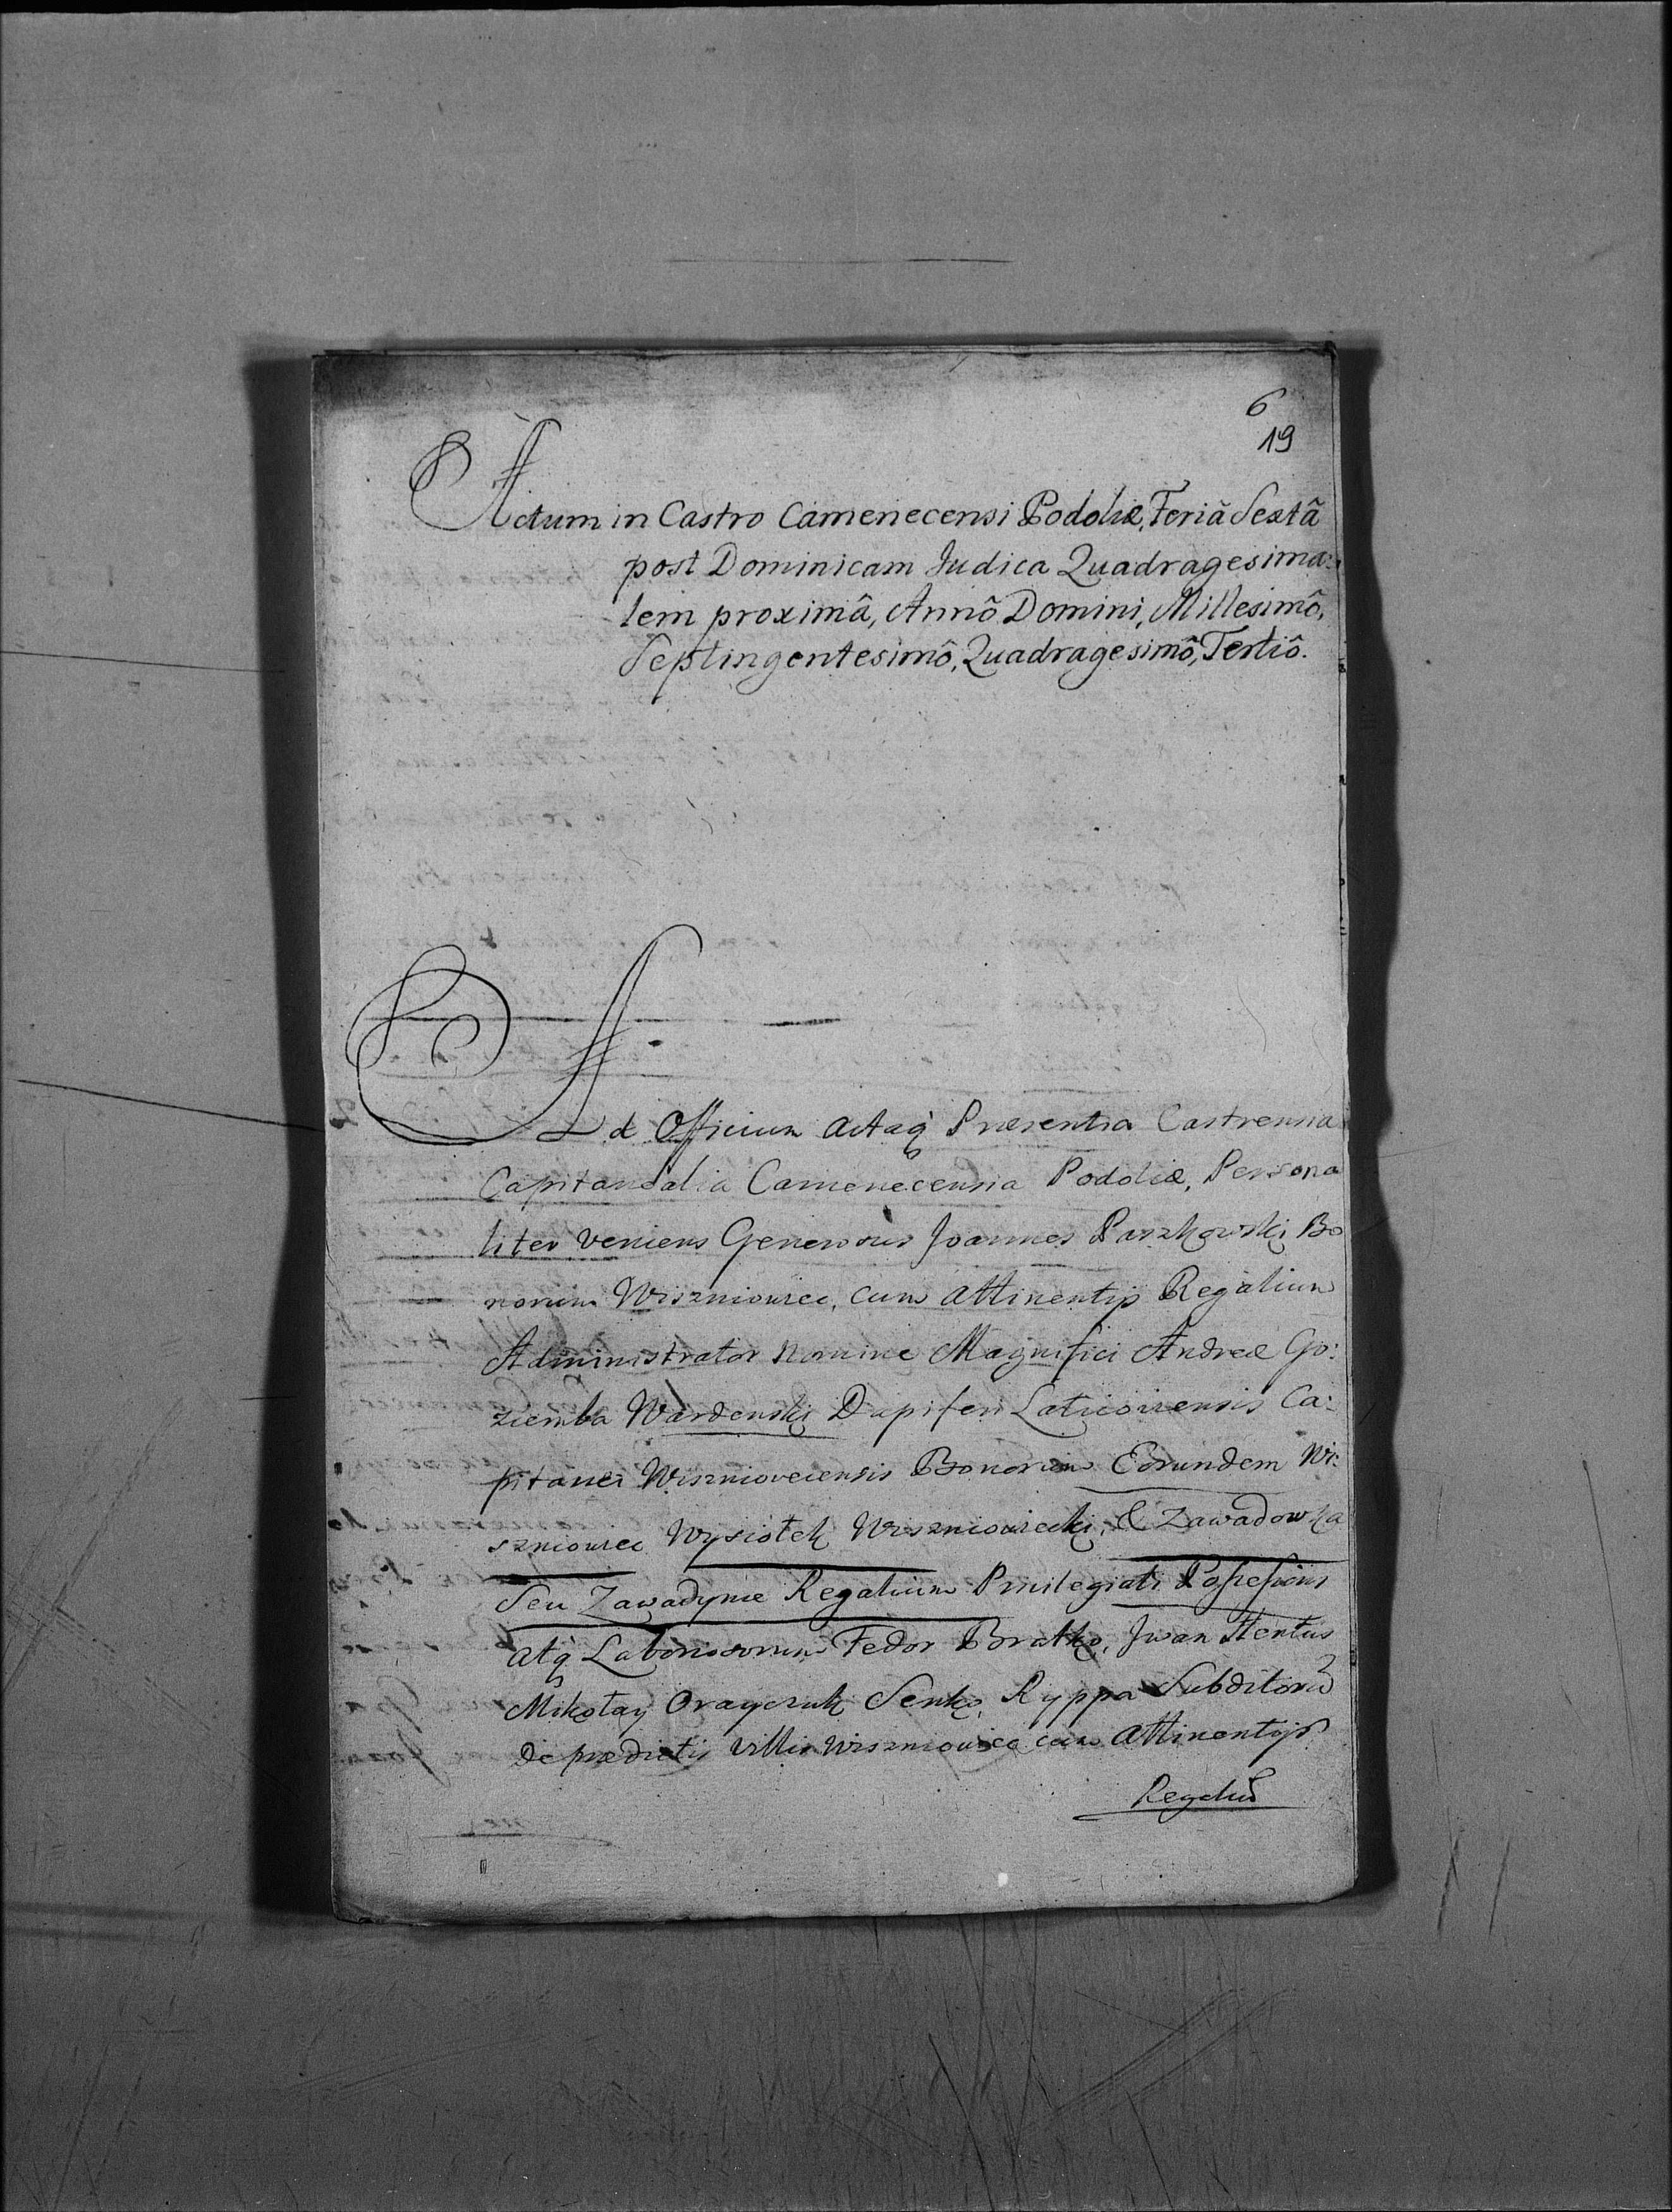 6
19
Actum in Castro Camenecensi Podoliæ, Feriâ Sextâ
post Dominicam Judica Quadragesima:
lem proximâ, Annô Domini, Millesimô,
Septingentesimô, Quadragesimô, Tertiô.
Ad Officium Actaq Præsentia Castrensia
Capitanealia Camenecensia Podoliæ, Persona
liter veniens Generosus Joannes Paszkowski Bo
norum Wiszniowiec, cum attinentijs Regalium
Administrator nomine Magnifici Andreæ Go:
ziemba Wardenski Dapiferi Laticoviensis Ca:
pitanei Wisznioveciensis Bonorum Eorundem Wi:
szniowiec Wysiołek Wiszniowiecki, & Zawadowka
Seu Zawadynie Regalium Privilegiati Possessoris
atq Laboriosorum Fedor Bratko, Jwan
Mikołay Orayczuk Senko, Ryppa Subditorū
de prædictis villis Wiszniowiec cum attinentijs
Regaliū